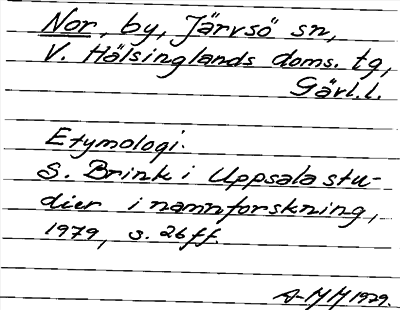 Nor, by, Järvsö sn,
V. Hälsinglands doms. tg,
Gävl.l.
Etymologi.
S. Brink i Uppsala stu-
dier i namnforskning,
1979, s. 26 ff.
A-MM 1979.